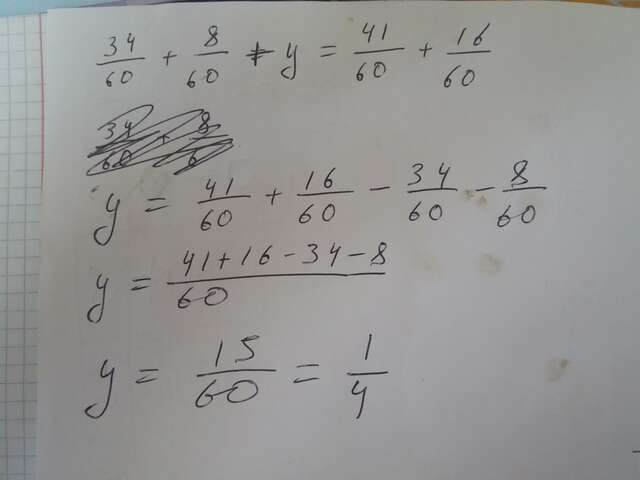 34/60 + 8/60 + y = 41/60 + 16/60
34/60 + 8/6
y = 41/60 + 16/60 - 34/60 - 8/60
y = (41+16-34-8)/60
y = 15/60 = 1/4